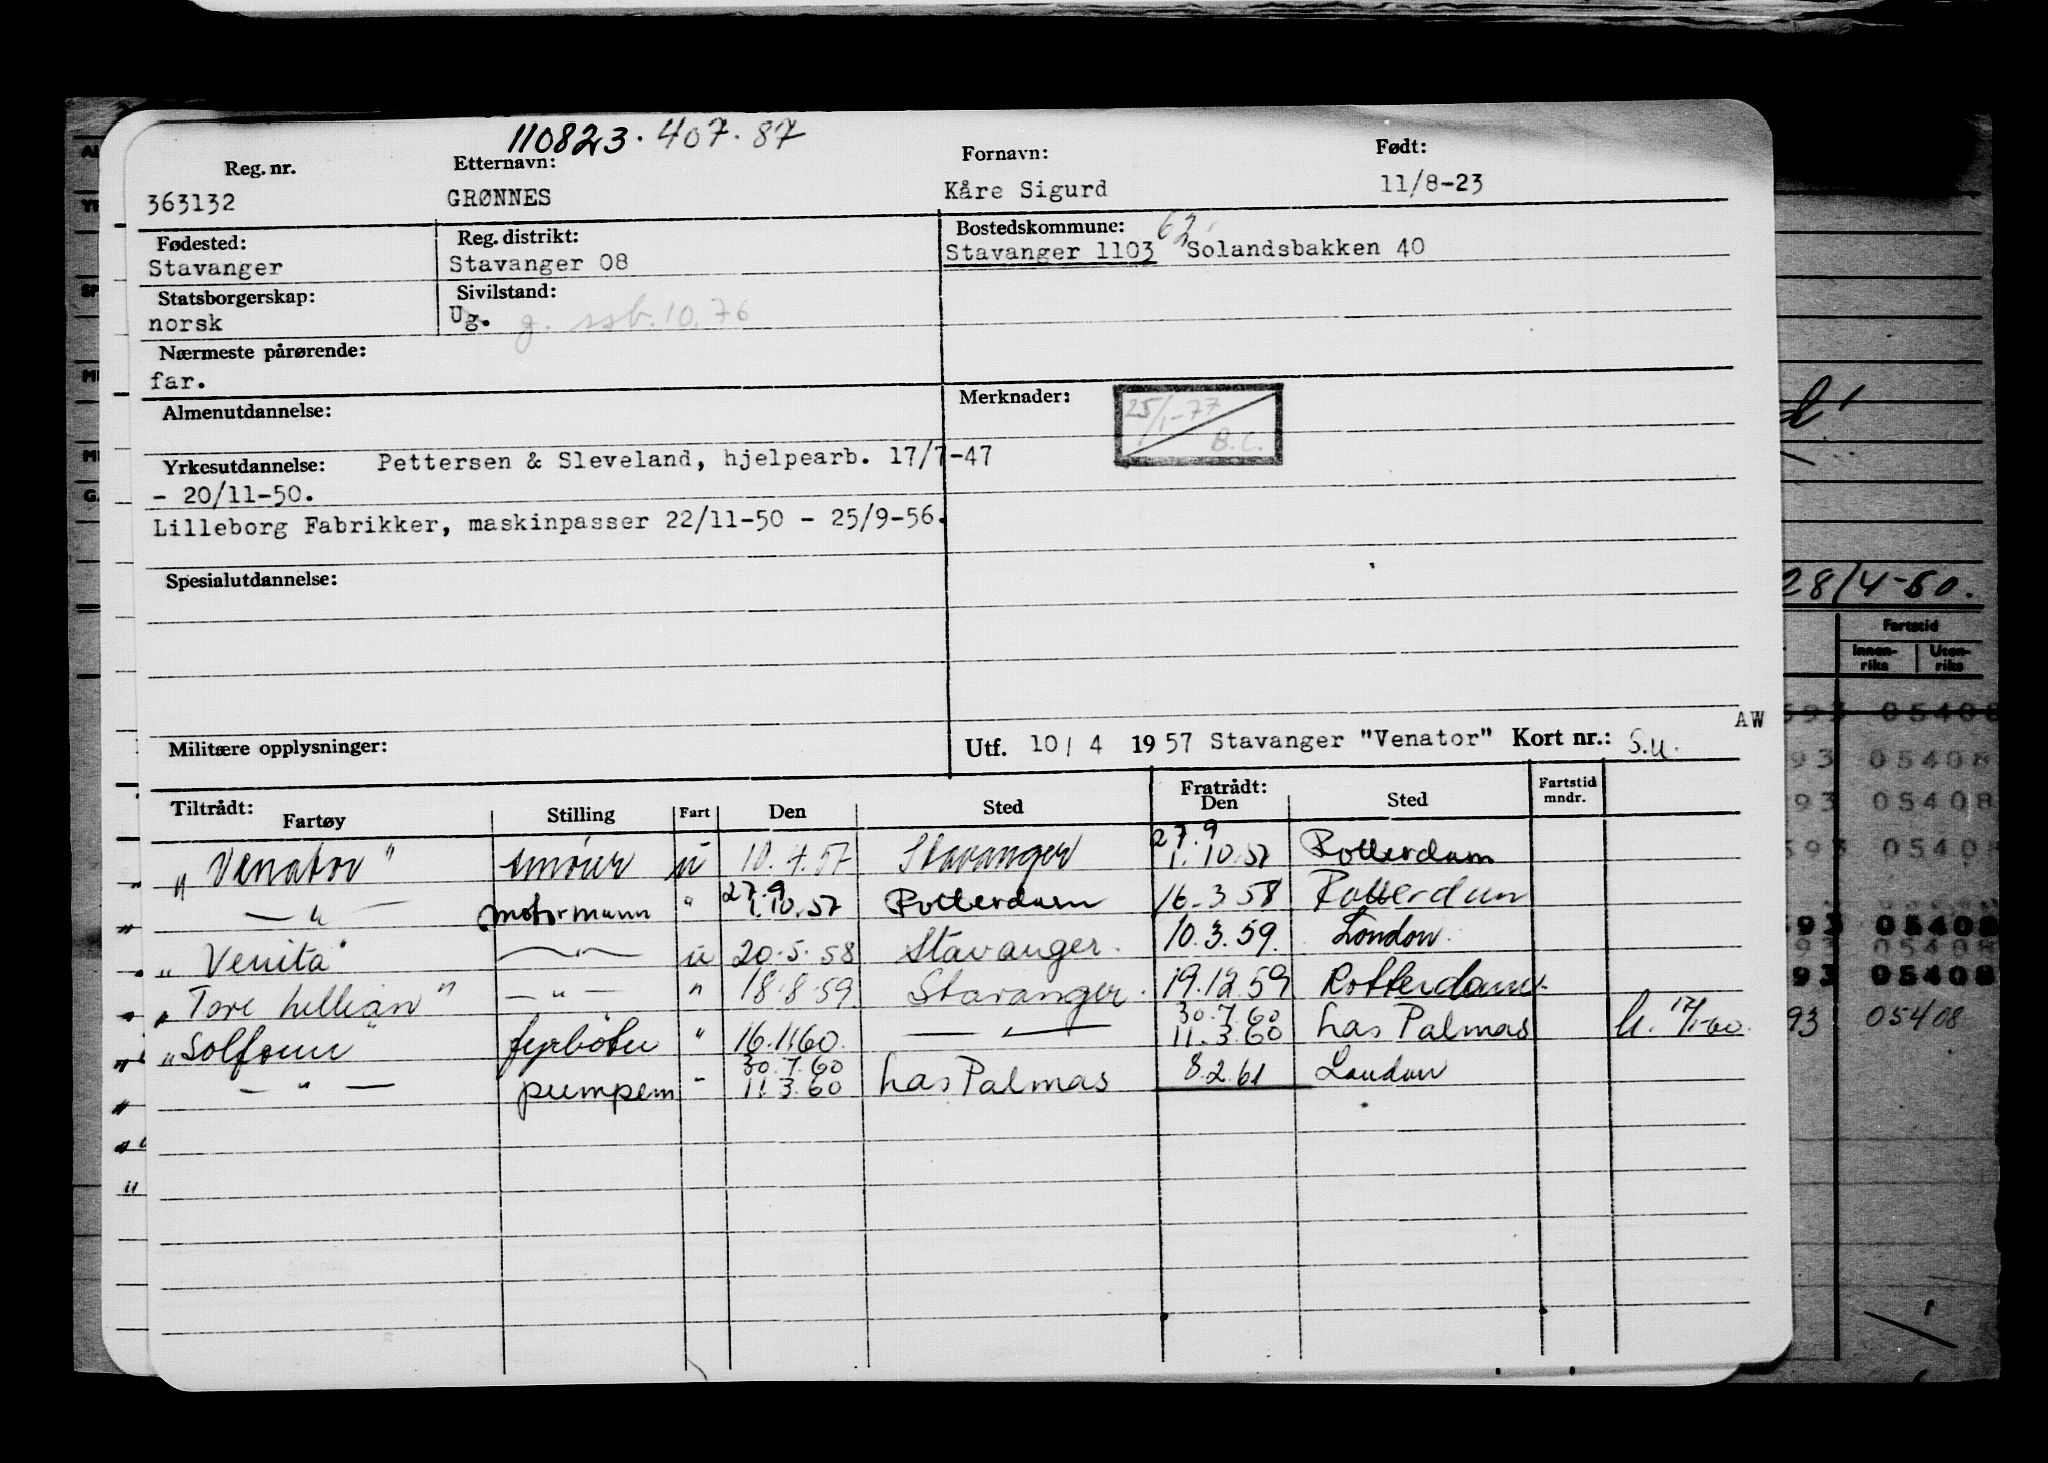 110823.407.87
Reg. nr. Etternavn: Fornavn: Født:
363132 GRØNNES Kåre Sigurd 11/8-23
Fødested: Reg. distrikt: Bostedskommune: 62
Stavanger Stavanger 08 Stavanger 1103 Solandsbakken 40
Statsborgerskap: Sivilstand:
norsk Ug. g. ssb. 10.76
Nærmeste pårørende:
far.
Almenutdannelse: Merknader: 25/1-77 B.C.
Yrkesutdannelse: Pettersen & Sleveland, hjelpearb. 17/7-47
- 20/11-50.
Lilleborg Fabrikker, maskinpasser 22/11-50 - 25/9-56.
Spesialutdannelse:
28/4-50.
Fartstid
Innen-riks Uten-riks
AW
Militære opplysninger: Utf. 10/ 4 1957 Stavanger "Venator" Kort nr.: S.u.
Tiltrådt: Fratrådt: Fartstid mndr.
Fartøy Stilling Fart Den Sted Den Sted
"Venator" smører u 10.4.57 Stavanger 27.9 1.10.57 Rotterdam
— " — motormann " 27.9 1.10.57 Rotterdam 16.3.58 Rotterdam
"Venita" — " — u 20.5.58 Stavanger. 10.3.59. London.
"Tore hellian" — " — " 18.8.59. Stavanger. 19.12.59 Rotterdam.
"Solfonn" fyrbøter " 16.1160. — " — 30.7.60 11.3.60 Las Palmas 17/1-60.
— " — pumpem " 30.7.60 11.3.60 Las Palmas 8.2.61 London
593 05408
93 05408
93 05408
593 05408
93 05408
93 05408
93 05408
93 05408